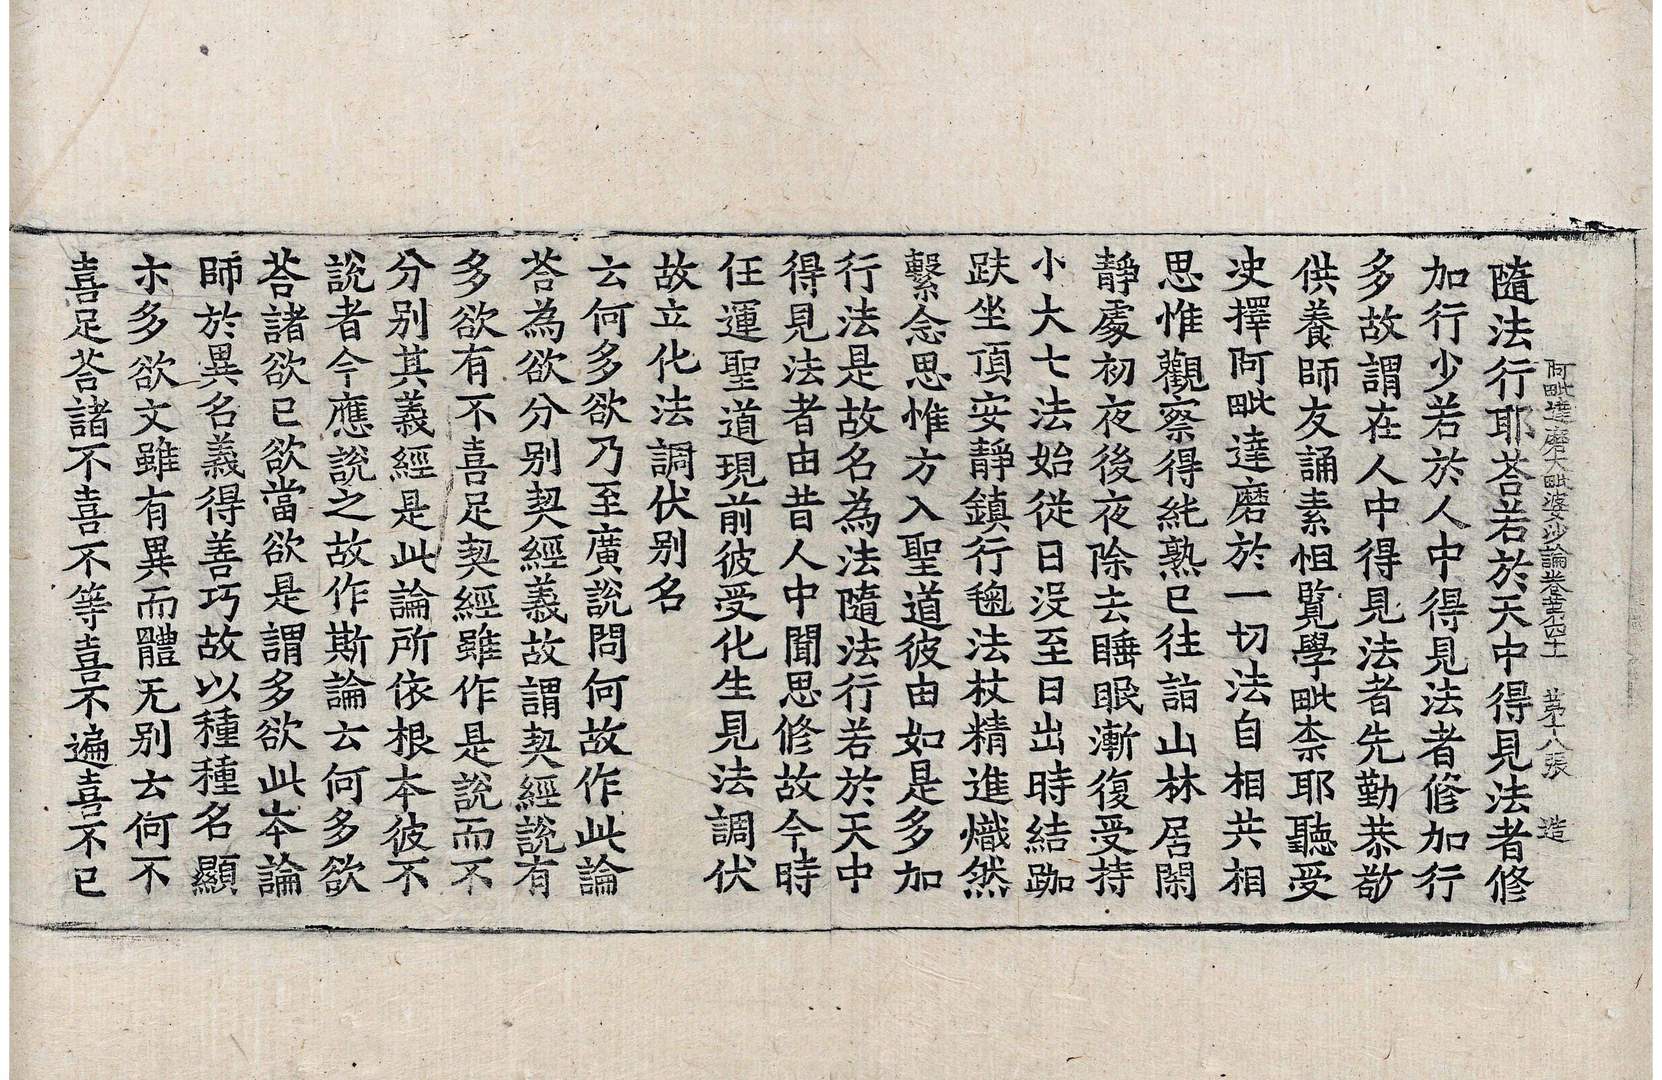 阿毗達磨大毗婆沙論卷第四十一 第十八張 造
隨法行耶荅若於天中得見法者修
加行少若於人中得見法者修加行
多故謂在人中得見法者先勤恭敬
供養師友誦素怛覽學毗柰耶聽受
决擇阿毗達磨於一切法自相共相
思惟觀察得純熟已往詣山林居閑
静處初夜後夜除去睡眠漸復受持
小大七法始從日没至日出時結跏
趺坐頂安静鎮行毱法杖精進熾然
繫念思惟方入聖道彼由如是多加
行法是故名為法隨法行若於天中
得見法者由昔人中聞思修故今時
任運聖道現前彼受化生見法調伏
故立化法調伏别名
云何多欲乃至廣說問何故作此論
荅為欲分别契經義故謂契經說有
多欲有不喜足契經雖作是說而不
分别其義經是此論所依根本彼不
說者今應說之故作斯論云何多欲
荅諸欲已欲當欲是謂多欲此本論
師於異名義得善巧故以種種名顯
示多欲文雖有異而體无别云何不
喜足荅諸不喜不等喜不遍喜不已